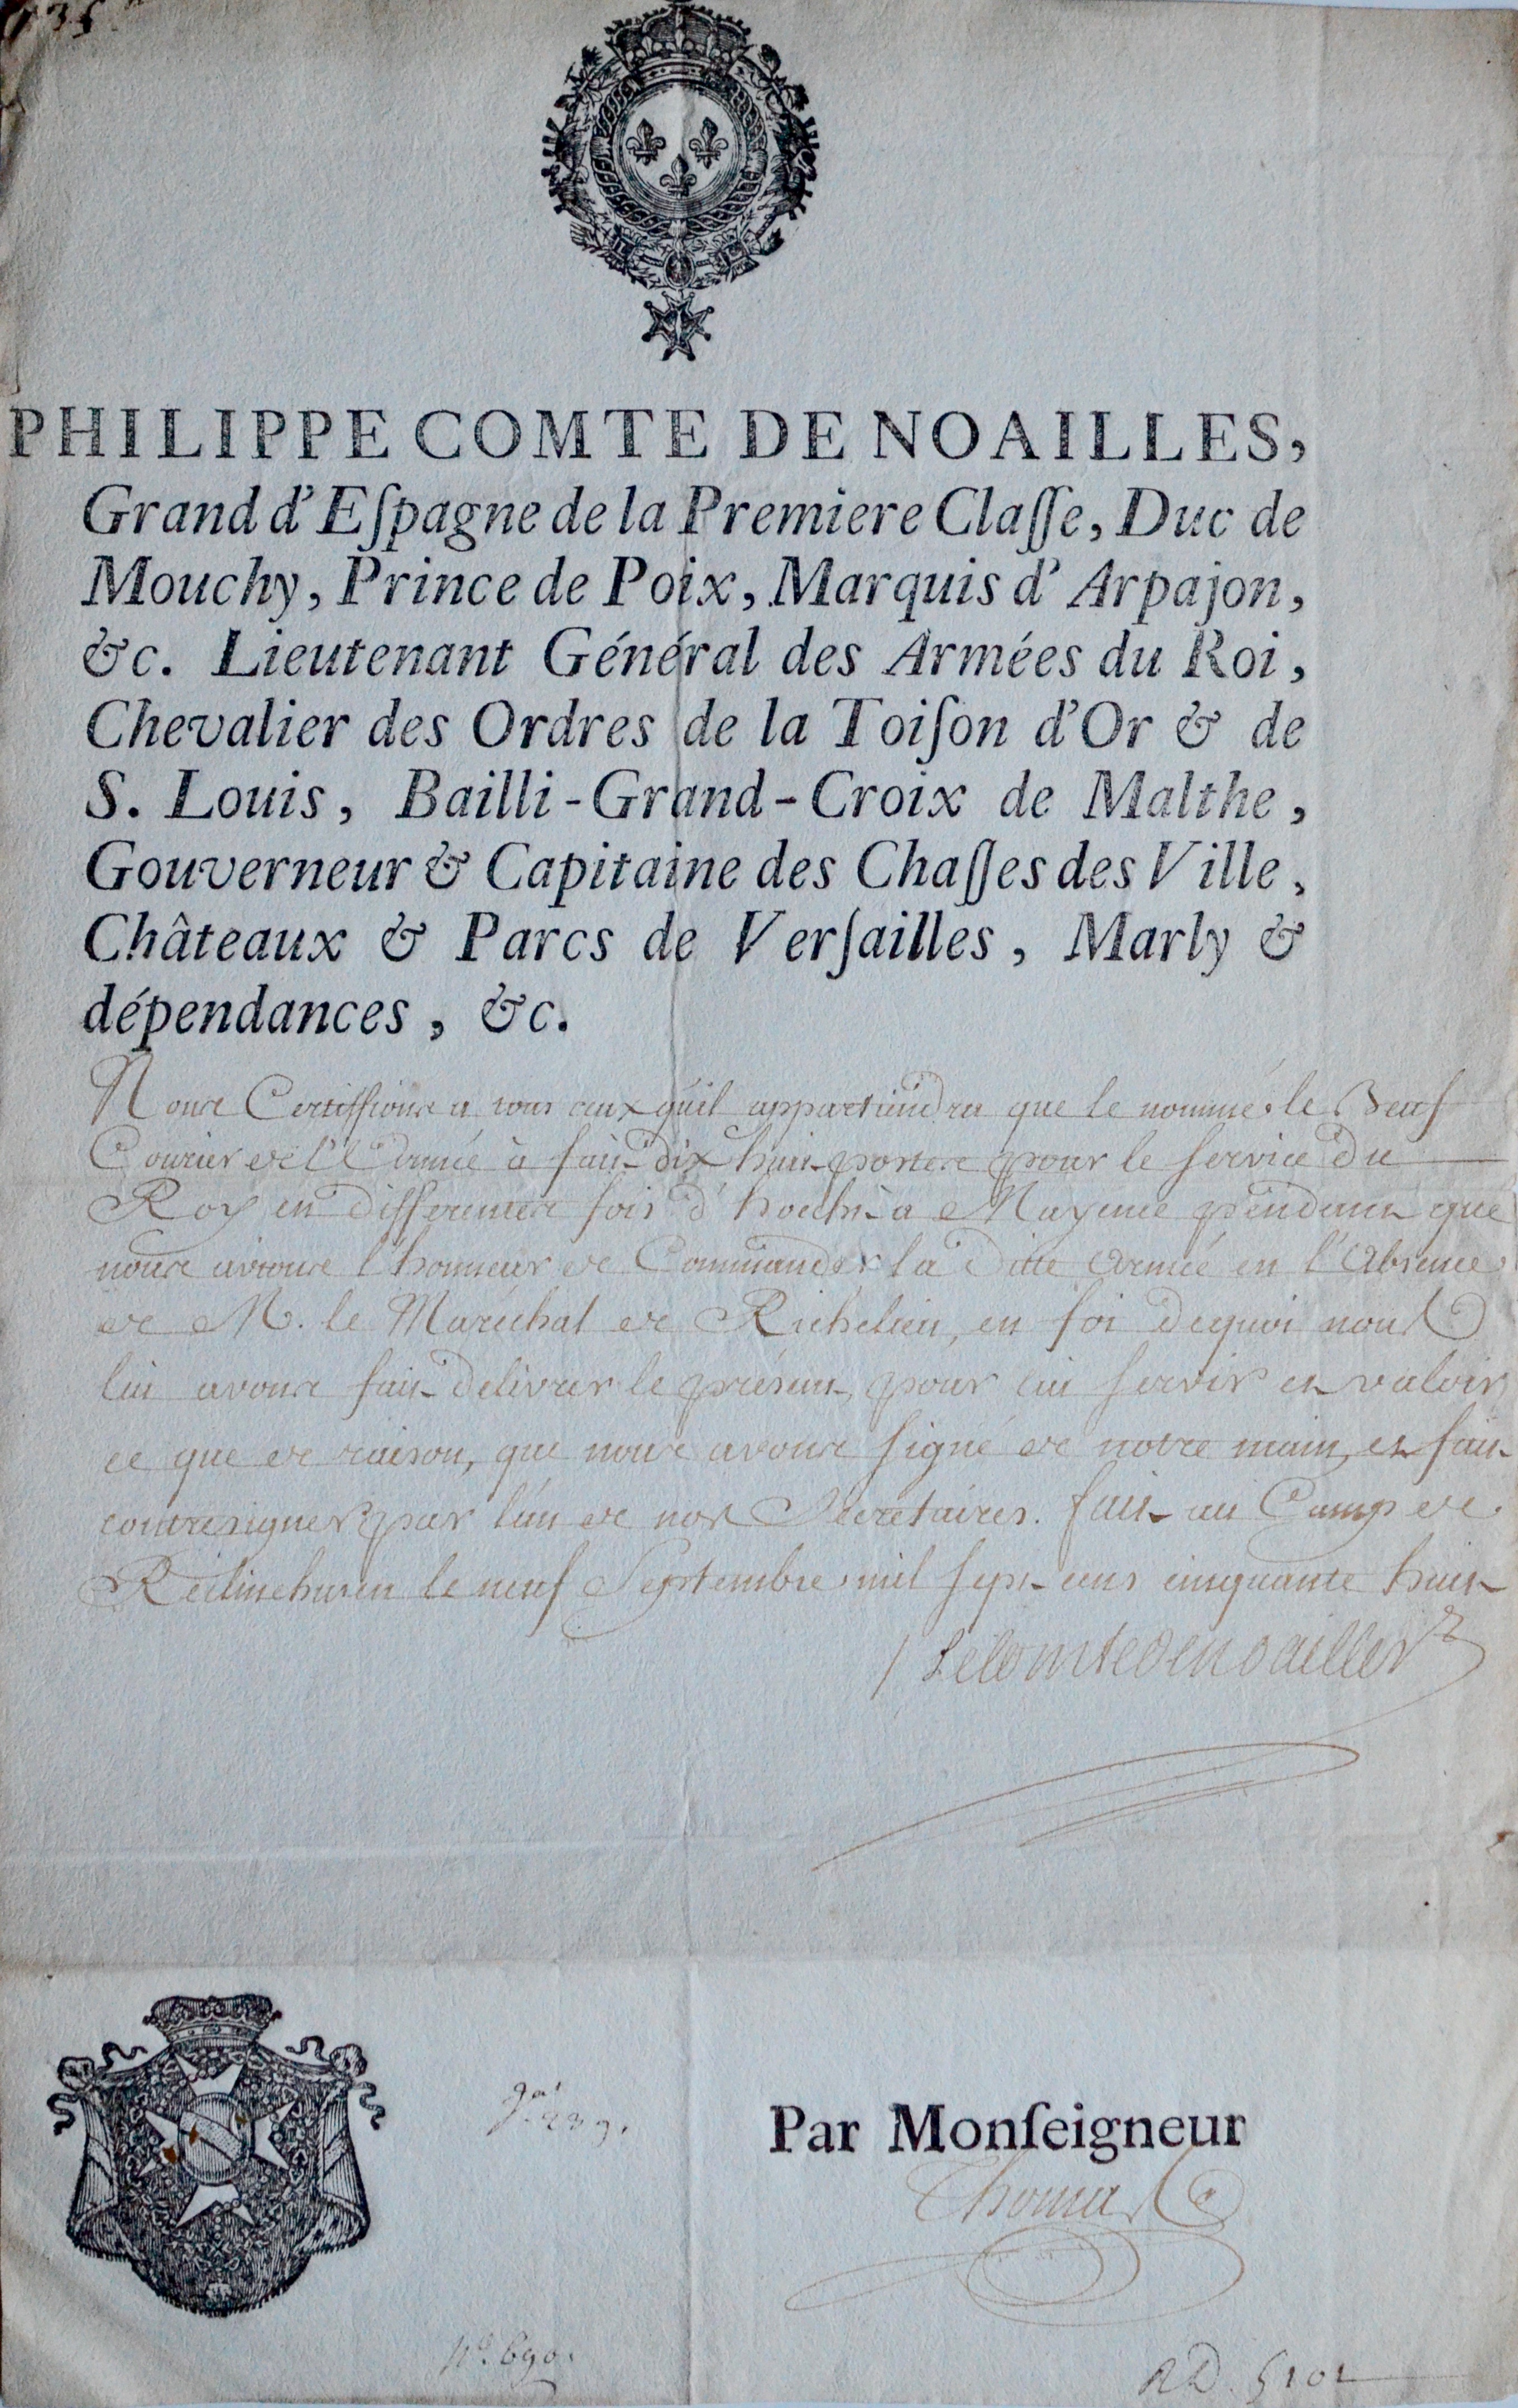 PHILIPPE COMTE DE NOAILLES,
Grand d'Eſpagne de la Premiere Claſſe, Duc de
Mouchy, Prince de Poix, Marquis d'Arpajon,
&c. Lieutenant Général des Armées du Roi,
Chevalier des Ordres de la Toiſon d'Or & de
S. Louis, Bailli-Grand-Croix de Malthe,
Gouverneur & Capitaine des Chaſſes des Ville,
Châteaux & Parcs de Verſailles, Marly &
dépendances, &c.
Nous Certiffions a tous ceux qu'il appartiendra que le nommé le Beuf
Courier de l'Armée à fait dix huit postes pour le service du
Roy en differentes fois d'hoechst a Mayence pendant que
nous avions l'honneur de Commander la ditte Armée en l'Absence
de M. le Maréchal de Richelieu, en foi dequoi nous
lui avons fait delivrer le présent, pour lui servir et valoir
ce que de raison, que nous avons signé de notre main, et fait
contresigner par l'un de nos Secretaires. fait au Camp de
le neuf Septembre mil sept cens cinquante huit
Le comte de noailles
Par Monſeigneur
Thomas
N.º 690.